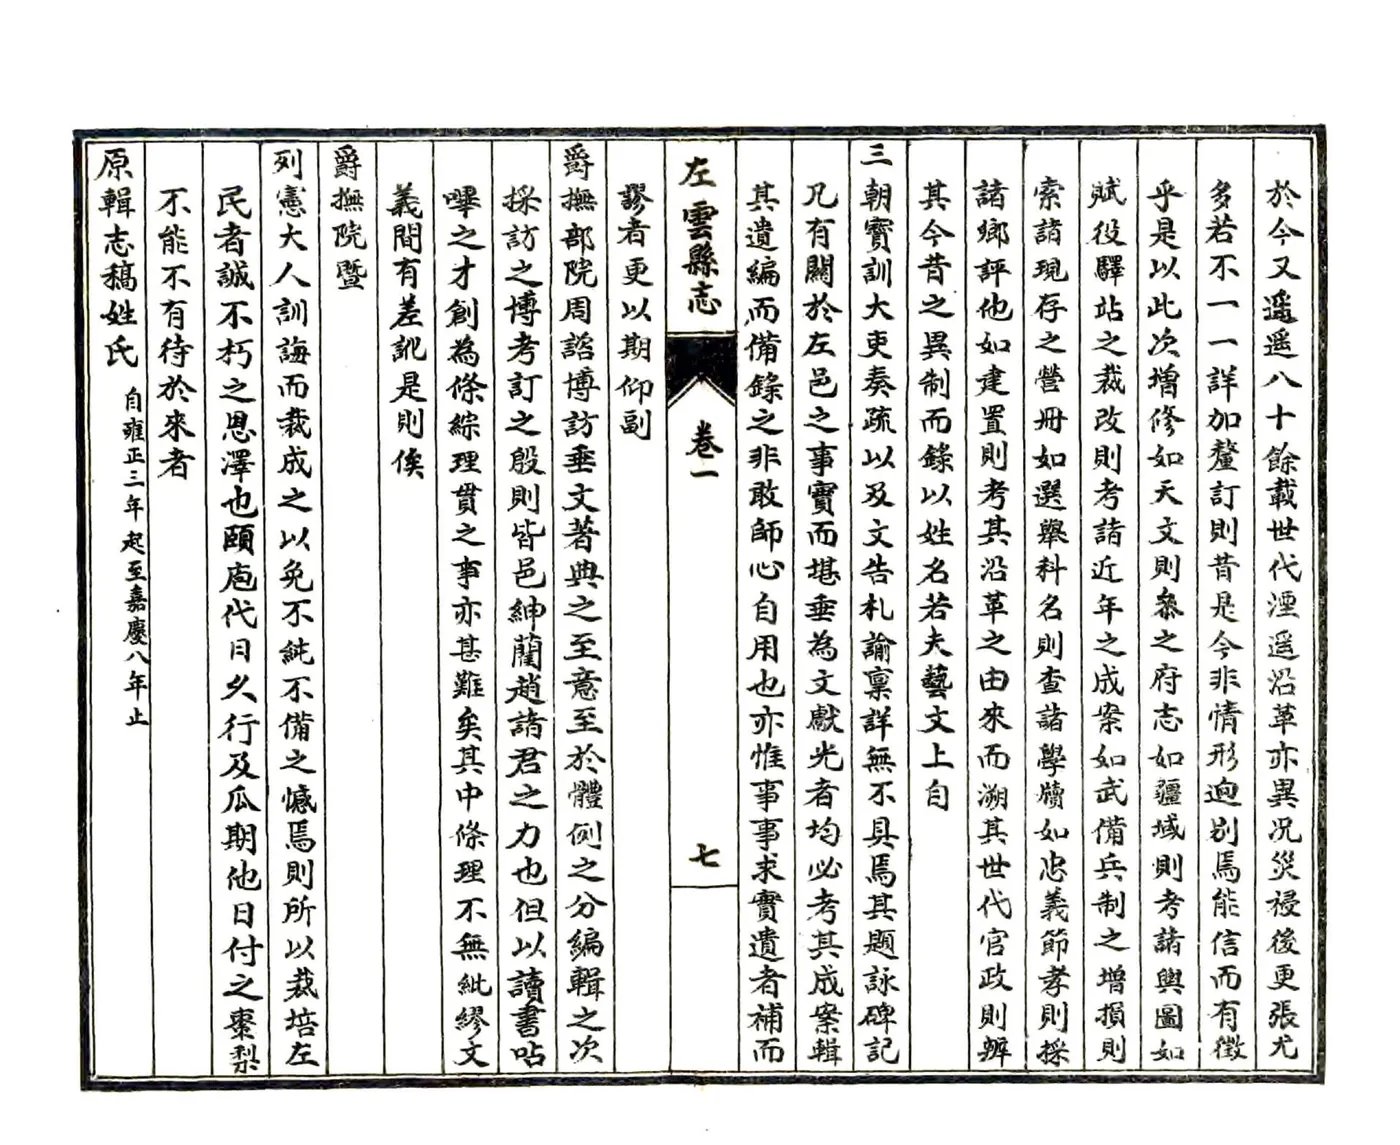 於今又遥遥八十餘載世代湮遥沿革亦異况災祲後更張尤
多若不一一詳加釐訂則昔是今非情形逈别焉能信而有徵
乎是以此次增修如天文則叅之府志如疆域則考諸輿圖如
賦役驛站之裁改則考諸近年之成案如武備兵制之增損則
索諸現存之營冊如選舉科名則查諸學牘如忠義節孝則採
諸鄉評他如建置則考其沿革之由來而溯其世代官政則辨
其今昔之異制而錄以姓名若夫藝文上自
三朝寶訓大吏奏疏以及文告札諭禀詳無不具焉其題詠碑記
凡有關於左邑之事實而堪垂為文獻光者均必考其成案輯
其遺編而備錄之非敢師心自用也亦惟事事求實遺者補而
左雲縣志
卷一
七
謬者更以期仰副
爵撫部院周諮博訪垂文著典之至意至於體例之分編輯之次
採訪之博考訂之殷則皆邑紳藺趙諸君之力也但以讀書呫
嗶之才創為條綜理貫之事亦甚難矣其中條理不無紕繆文
義間有差訛是則俟
爵撫院暨
列憲大人訓誨而裁成之以免不純不備之憾焉則所以栽培左
民者誠不朽之恩澤也頤庖代日久行及瓜期他日付之棗梨
不能不有待於來者
原輯志稿姓氏 自雍正三年起至嘉慶八年止